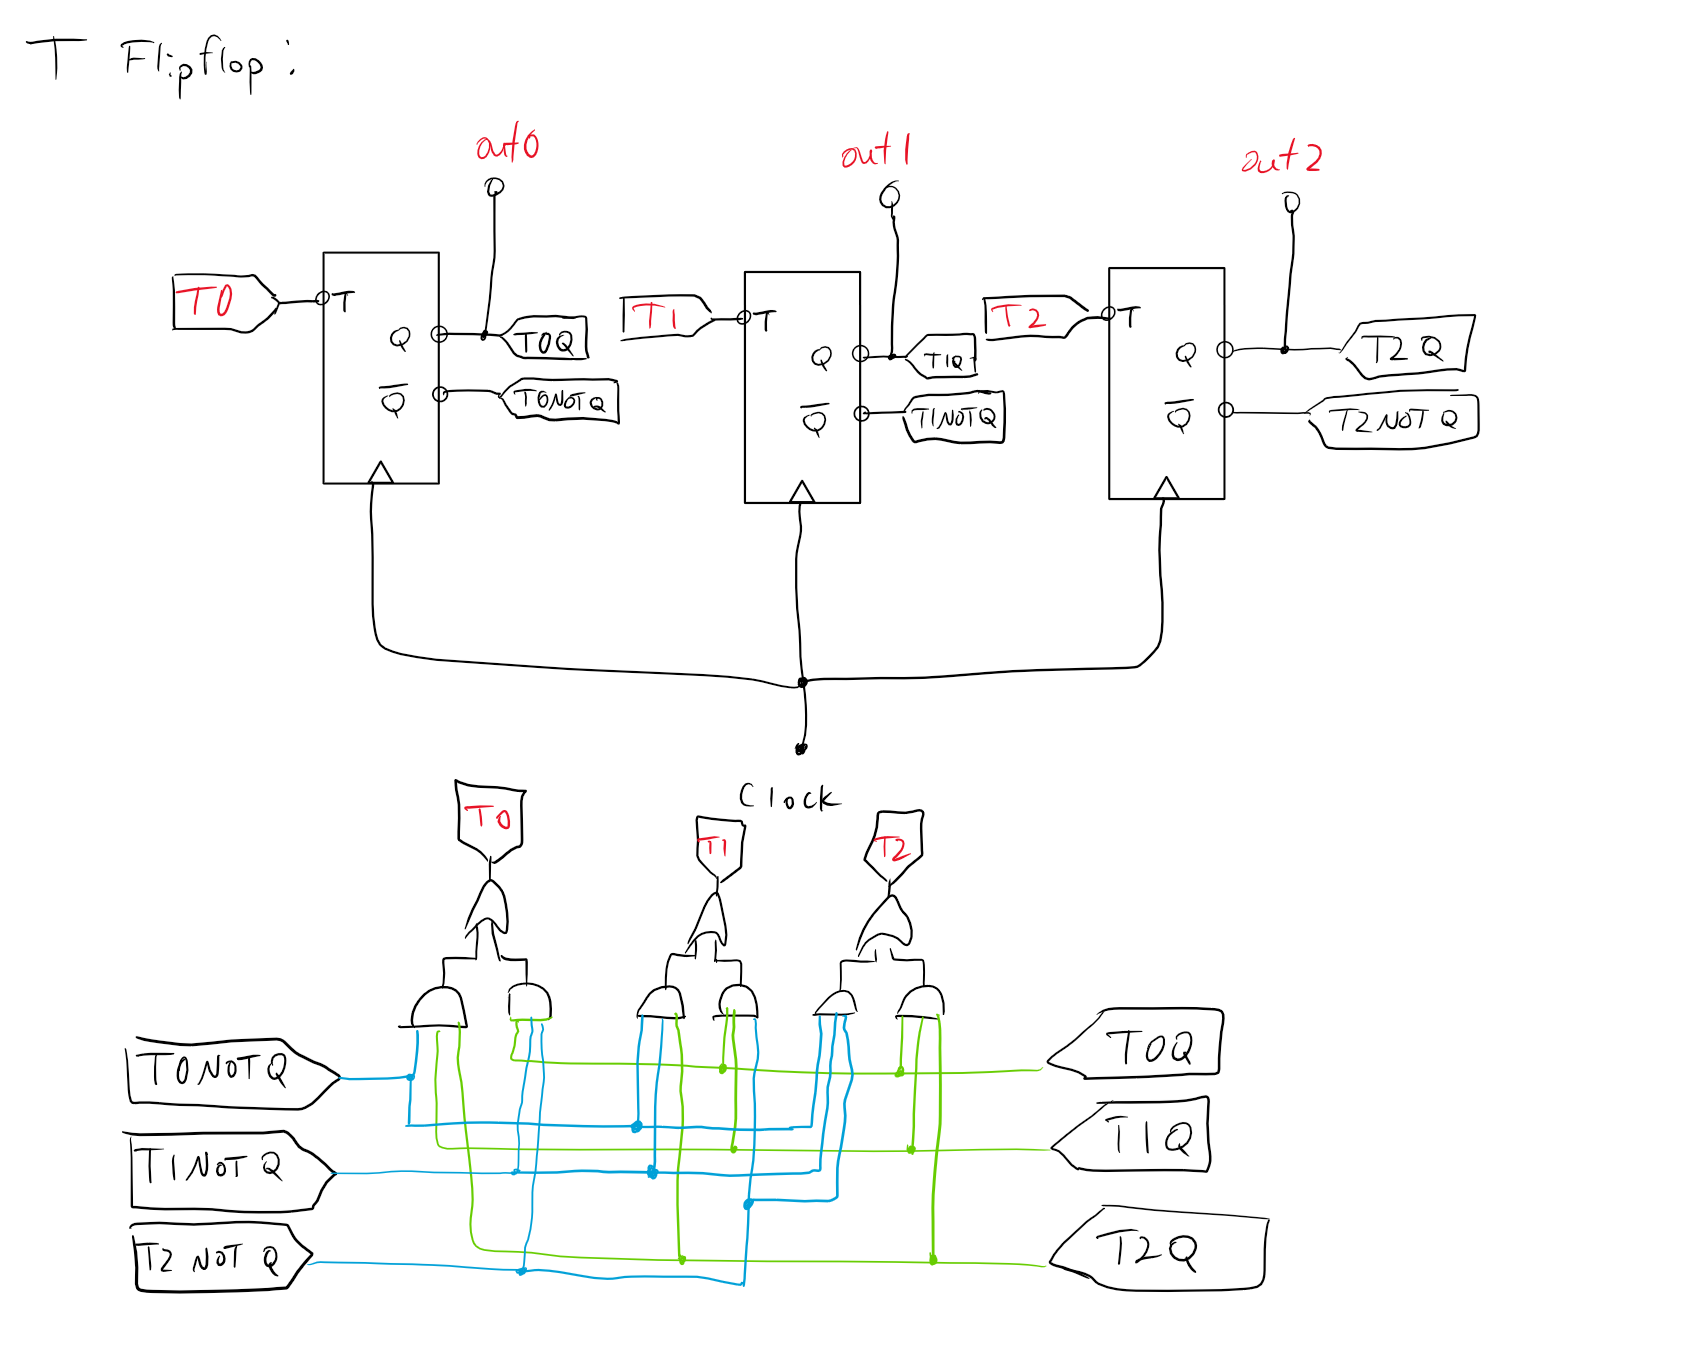 T Flipflop:
out0
out1
out2
T0
T
Q
Q̅
T0Q
T0NOTQ
T1
T
Q
Q̅
T1Q
T1NOTQ
T2
T
Q
Q̅
T2Q
T2 NOT Q
Clock
T0
T1
T2
T0NOTQ
T1NOTQ
T2 NOT Q
T0Q
T1Q
T2Q